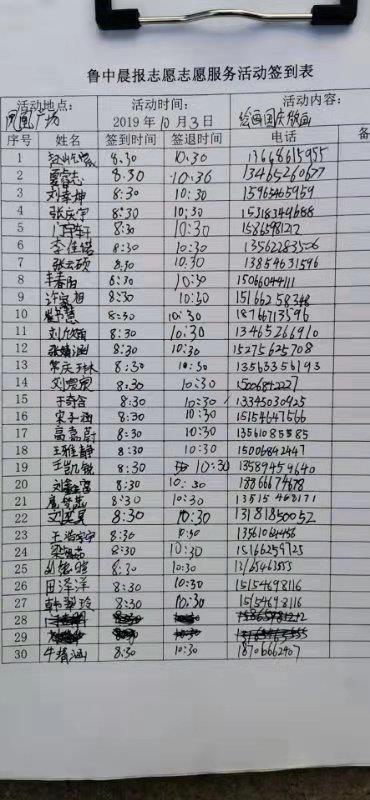 鲁中晨报志愿志愿服务活动签到表
活动地点: 活动时间: 活动内容:
凤凰广场 2019年10月3日 绘画国庆版画
序号 姓名 签到时间 签退时间 电话 备
1 8:30 10:30 13668615955
2 8:30 10:30 13465260677
3 刘幸坤 8:30 10:30 15965465959
4 张庆宇 8:30 10:30 15318349688
5 8:30 10:30 15865981212
6 李佳锘 8:30 10:30 13562283506
7 张云硕 8:30 10:30 13854631596
8 8:30 10:30 15066044111
9 8:30 10:30 15166258348
10 8:30 10:30 18716713596
11 刘欣茹 8:30 10:30 13465266910
12 张婧涵 8:30 10:30 15275625708
13 常庆 8:30 10:30 13563356193
14 刘宸宸 8:30 10:30 15006842227
15 于奇含 8:30 10:30 13345030925
16 宋子涵 8:30 10:30 15154647566
17 高嘉蔚 8:30 10:30 13561085585
18 王雅静 8:30 10:30 15006842447
19 王凯铭 8:30 10:30 13589459640
20 刘鑫 8:30 10:30 18366674678
21 8:30 10:30 13515468171
22 刘奕昊 8:30 10:30 13181850052
23 王浩宇 8:30 10:30 13561064456
24 8:30 10:30 15166259725
25 8:30 10:30
26 田泽洋 8:30 10:30 15154698116
27 韩梦玲 8:30 10:30 15154698116
28
29
30 牛梓涵 8:30 10:30 18706662407